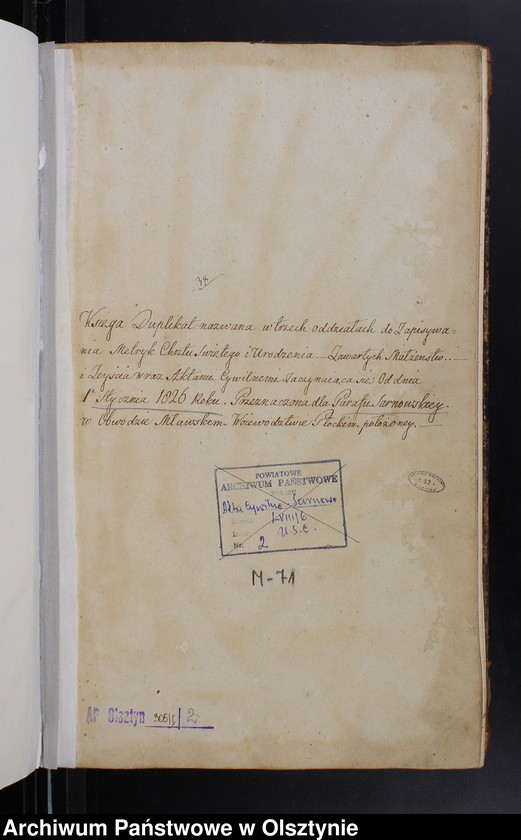 34
Księga Duplikat nazwana w trzech oddziałach do Zapisywa=
nia Metryk Chrztu Swiętego i Urodzenia Zawartych Małzenstw
i Zeyścia wraz Aktami Cywilnemi Zaczynaiąca się Od dnia
1º Stycznia 1826 Roku. Przeznaczona dla Parafii Sarnowskiey.
w Obwodzie Mławskim Wojewodztwie Płockim położoney.
POWIATOWE
ARCHIWUM PAŃSTWOWE
Akta Cywilne Sarnowo
LVIII/6
U.S.C.
Nr. 2
M-71
AP Olsztyn 305/1 2
Archiwum Państwowe w Olsztynie